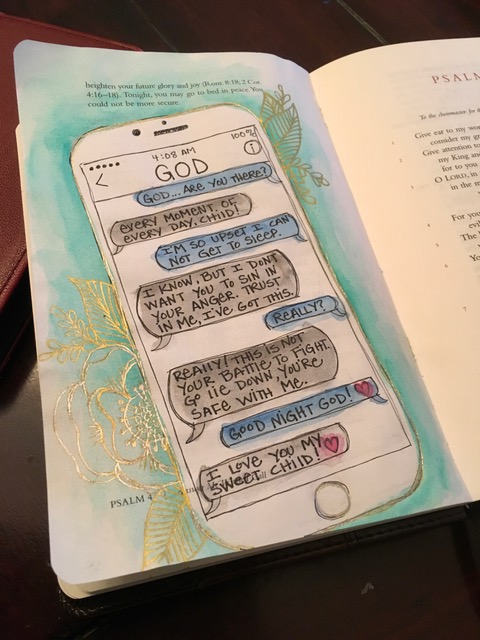 heighten your future glory and joy (Rom. 8:18; 2 Cor.
4:16–18). Tonight, you may go to bed in peace. You
could not be more secure.
100%
4:08 AM
GOD
i
GOD...ARE YOU THERE?
EVERY MOMENT OF
EVERY DAY, CHILD!
I'M SO UPSET I CAN
NOT GET TO SLEEP.
I KNOW, BUT I DON'T
WANT YOU TO SIN IN
YOUR ANGER. TRUST
IN ME, I'VE GOT THIS.
REALLY?
REALLY! THIS IS NOT
YOUR BATTLE TO FIGHT.
GO LIE DOWN, YOU'RE
SAFE WITH ME.
GOOD NIGHT GOD!
I LOVE YOU MY
SWEET CHILD!
PSALM 4
PSALM
To the choirmaster: for the
Give ear to my wor
consider my gro
Give attention to
my King and
for to you
O LORD, in
in the m
For you
evil
The
Yo
7